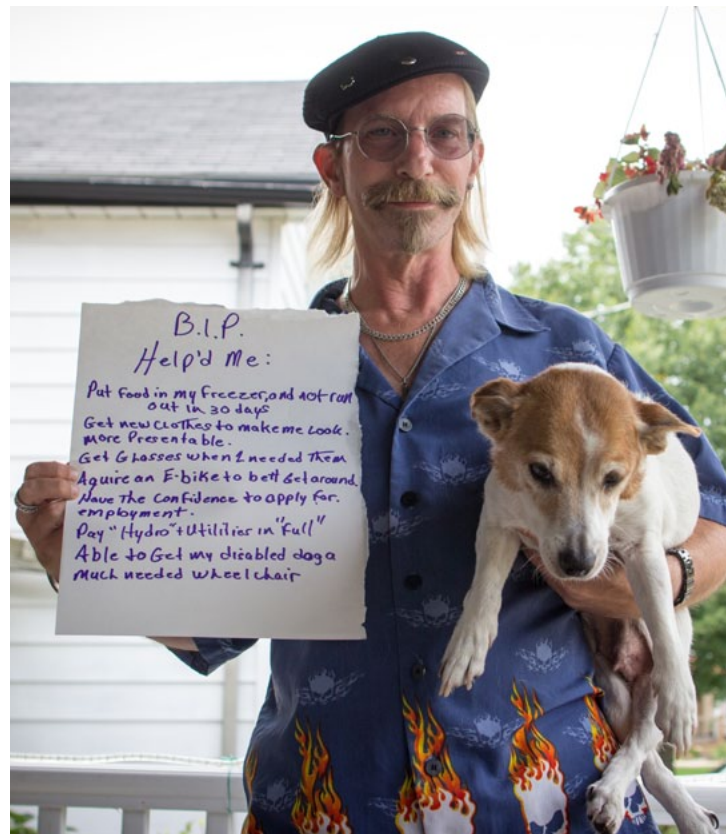 B.I.P.
Help'd Me:
Put Food in my Freezer, and not run
out in 30 days
Get new clothes to make me Look.
More Presentable.
Get Glasses when I needed Them
Aquire an E-bike to bett Get around.
Have The Confidence to apply for.
employment.
Pay "Hydro"+Utilities in "Full"
Able to Get my disabled dog a
Much needed wheelchair